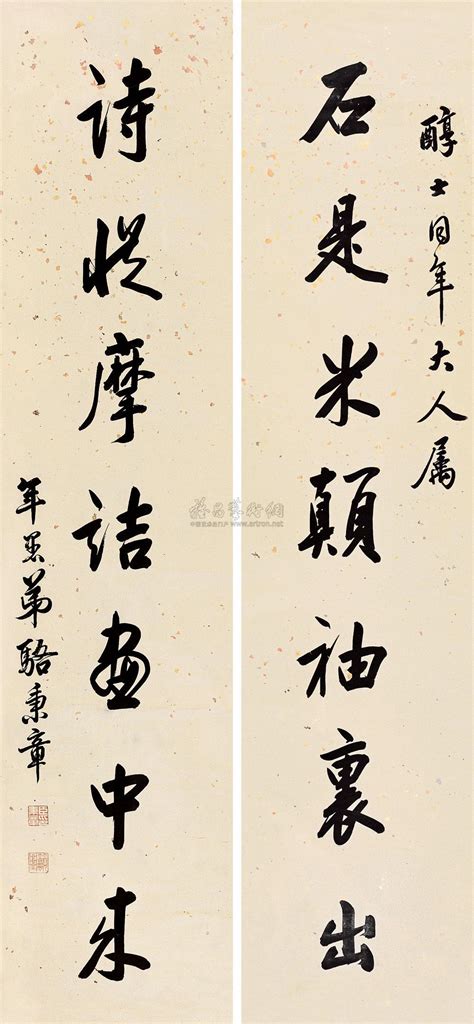 醇士同年大人属
石是米顛袖裏出
詩從摩詰畫中来
年愚弟駱秉章
雅昌藝術網
www.artron.net